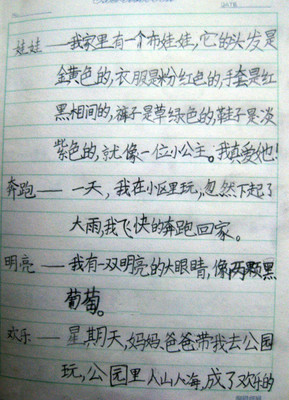 娃娃——我家里有一个布娃娃,它的头发是
金黄色的,衣服是粉红色的,手套是红
黑相间的,裤子是草绿色的,鞋子是淡
紫色的,就像一位小公主。我真爱她!
奔跑——一天,我在小区里玩,忽然下起了
大雨,我飞快的奔跑回家。
明亮——我有一双明亮的大眼睛,像两颗黑
葡萄。
欢乐——星期天,妈妈、爸爸带我去公园
玩,公园里人山人海,成了欢乐的